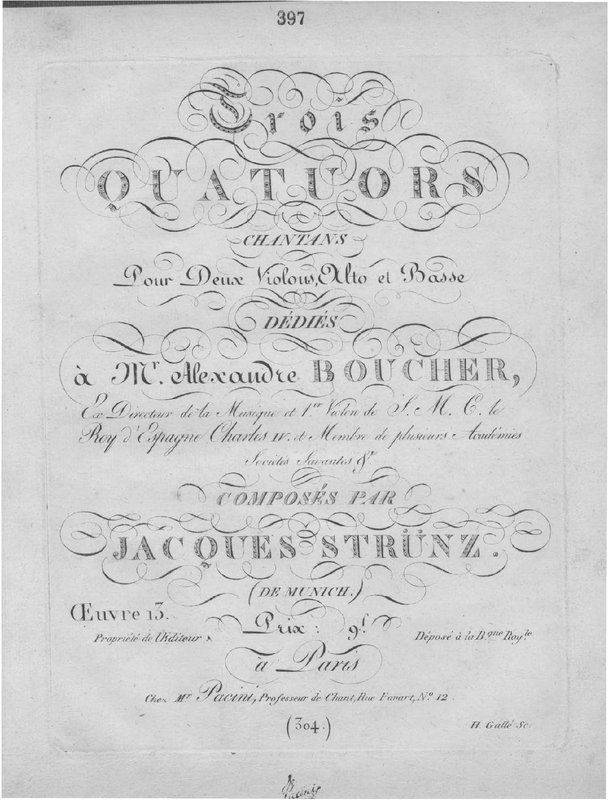 397
Trois
QUATUORS
CHANTANS
Pour Deux Violons, Alto et Basse
DÉDIÉS
à Mr. Alexandre BOUCHER,
Ex Directeur de la Musique et 1.er Violon de S. M. C. le
Roy d'Espagne Charles IV. et Membre de plusieurs Académies
Sociétés Savantes &c.
COMPOSÉS PAR
JACQUES STRÜNZ.
(DE MUNICH.)
Œuvre 13.
Prix: 9f.
Propriété de l'Editeur
Déposé à la Bque Royle
à Paris
Chez Mr Pacini, Professeur de Chant, Rue Favart, No. 12
(304.)
H. Gallé Sc.
Pacini